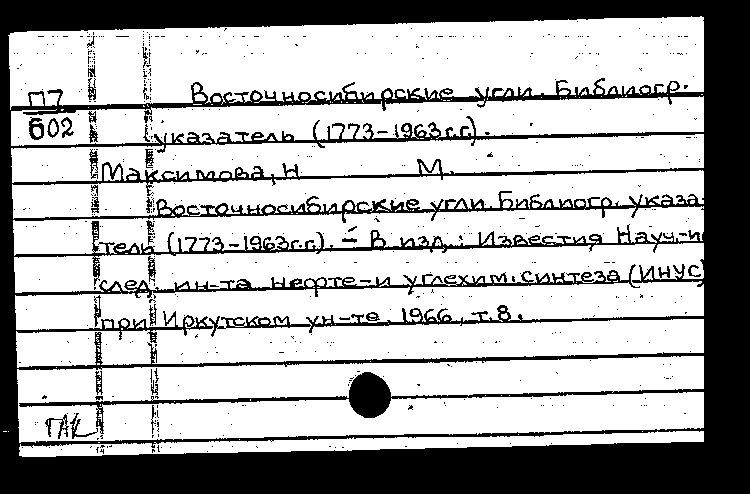 П7 Восточносибирские угли. Библиогр.
602 указатель (1773-1963г.г).
Максимова, Н М.
Восточносибирские угли. Библиогр. указа-
тель (1773-1963г.г). - В изд.: Известия Науч.-и
след. ин-та нефте-и углехим.синтеза (ИНУС)
при Иркутском ун-те. 1966, т.8.
ГАК